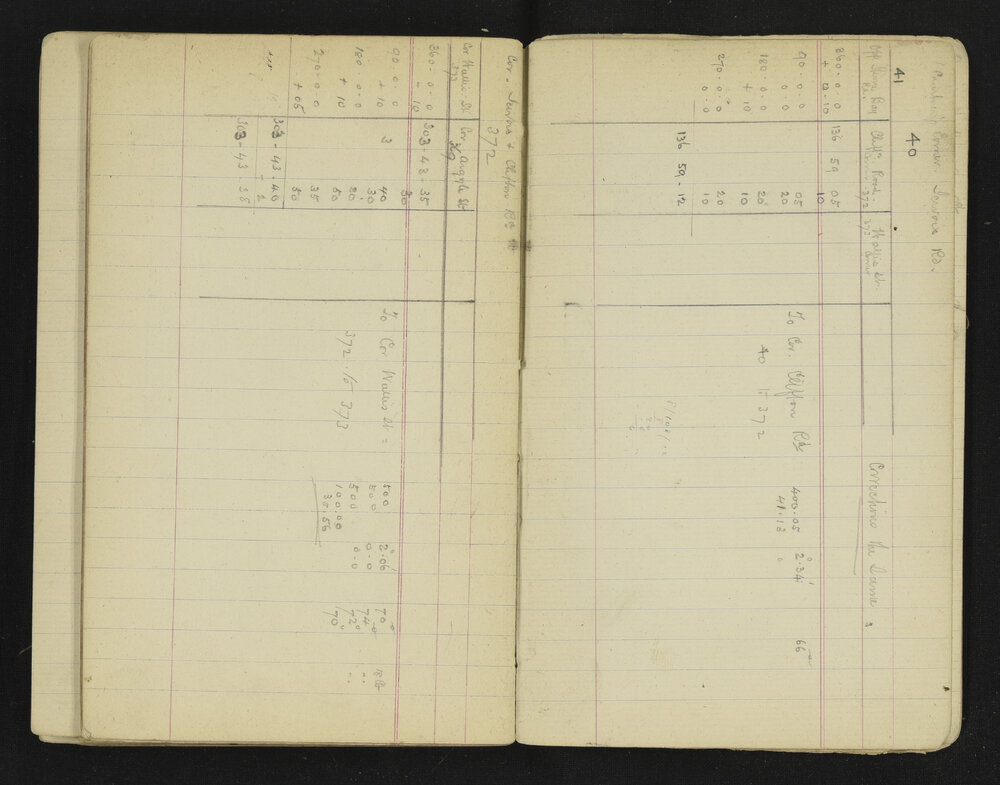 Corner Jervois Rd.
41 40
Clifton Road 372
Wallis St. 373
Corner
360 . 0 . 0 136 59 05
+ 0 . 10 10
90 . 0 . 0 05
0 0 20
180 . 0 . 0 20
+ 10 10
270 . 0 . 0 20
0 . 0 10
136 59 . 12
Corrections the Same
To Cor. Clifton Rd 400.05 2°.34' 66
40 to 372 41.13
Cor. Jervois & Clifton Rd
372
Cor Wallis St Cor Argyle St
373 369
360 . 0 . 0 303 . 43 . 35
- 10 30
90 . 0 . 0 3 40
+ 10 30
180 . 0 . 0 20
+ 10 50
270 . 0 . 0 35
+ 05 50
303 . 43 . 40
2
303 - 43 . 38
To Cor Wallis St = 500 2°.06' 70
372 to 373 500 0 . 0 74
500 0 . 0 72
100.00 70
30.56